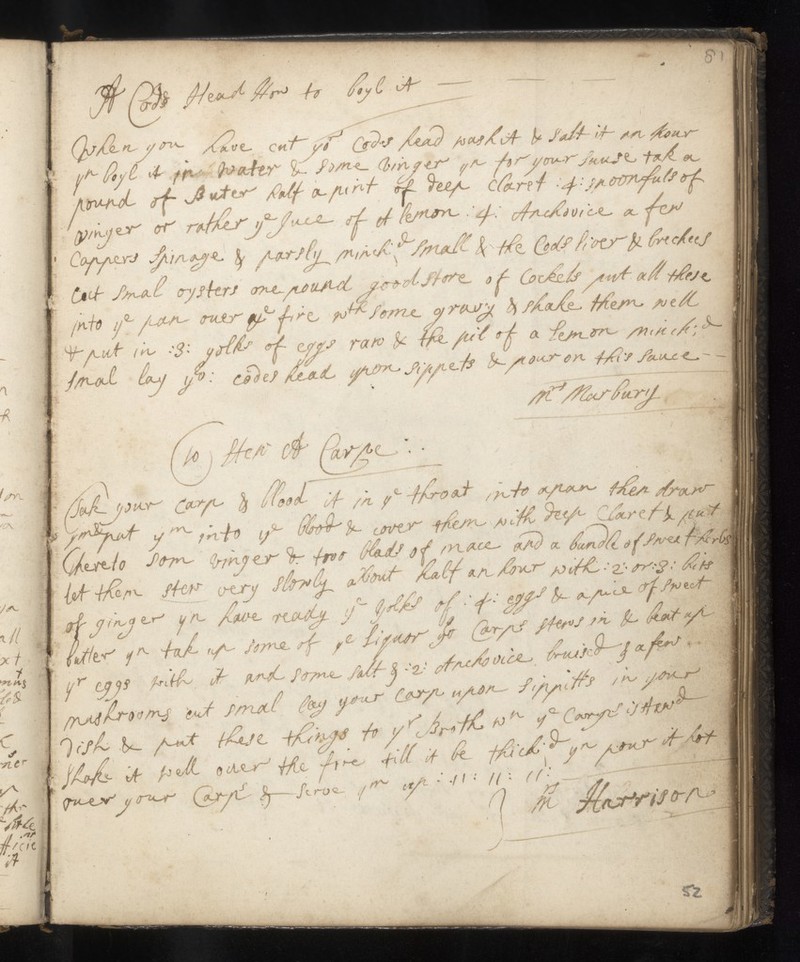 81
A Cods Head How to boyl it
When you have cut yor Codes head wash it & salt it an hour
yn boyl it in Water & some Vinger yn for your sauce tak a
pound of Buter half a pint of deep Claret :4: spoonfuls of
Vinger or rather ye Juce of A lemon :4: Anchovice a few
Cappers Spinage & parsly minch'd small & the Cods liver & brechees
Cut smal oysters one pound good store of Cockels put all these
into ye pan over ye fire wth some gravy & shake them well
& put in :3: yolks of eggs raw & the pil of a lemon minch'd
smal lay yo: codes head upon sippets & pour on this sauce
Mrs Marbury
To Stew A Carpe
Tak your carp & blood it in ye throat into a pan then draw
ym & put ym into ye blood & cover them with deep Claret & put
thereto som vinger & two blads of mace and a bundle of sweet herbs
let them stew very slowly about half an hour with :2: or :3: bits
of ginger yn have ready ye yolks of :4: eggs & a pice of sweet
butter yn tak up some of ye liquor yo Carps stews in & beat up
yr eggs with it and some salt & :2: Anchovice bruised & a few
mushrooms cut smal lay your carp upon sippitts in your
Dish & put these things to yr Broth wn ye Carpe is stewd
shake it well over the fire till it be thick'd yn pour it hot
over your Carps & serve ym up :11: 11: 11:
Mr Harrison
52